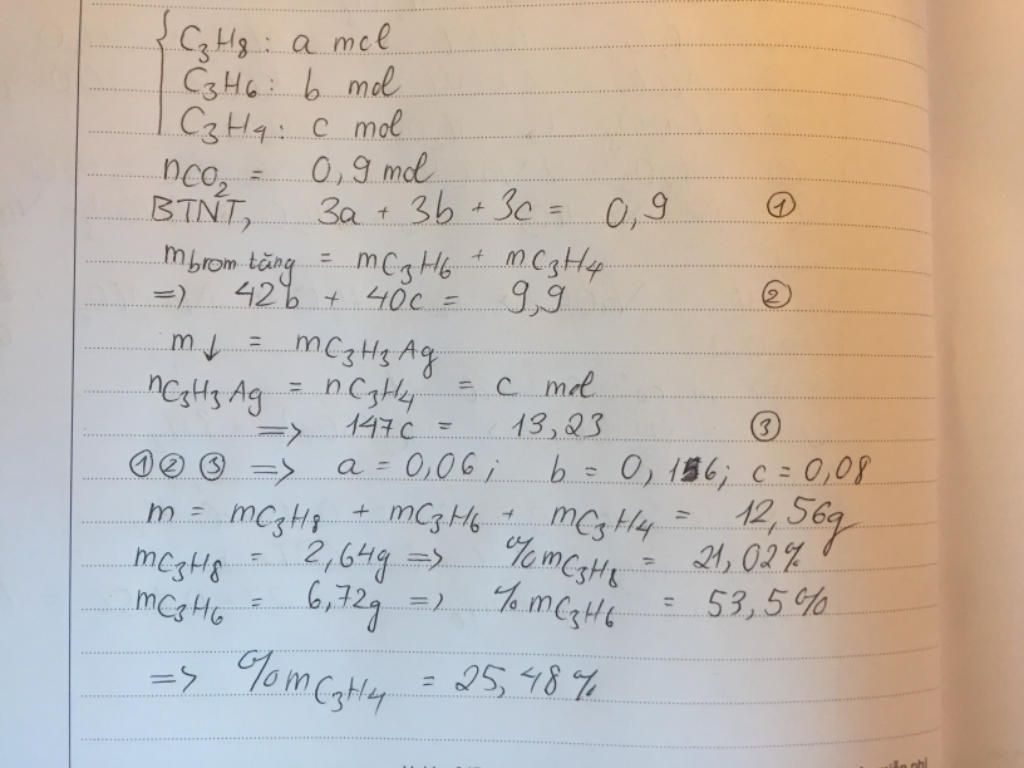 C₃H₈ : a mol
C₃H₆ : b mol
C₃H₄ : c mol
nCO₂ = 0,9 mol
BTNT, 3a + 3b + 3c = 0,9 ①
m brom tăng = mC₃H₆ + mC₃H₄
=> 42b + 40c = 9,9 ②
m↓ = mC₃H₃Ag
nC₃H₃Ag = nC₃H₄ = c mol
=> 147c = 13,23 ③
①②③ => a = 0,06; b = 0,16; c = 0,08
m = mC₃H₈ + mC₃H₆ + mC₃H₄ = 12,56g
mC₃H₈ = 2,64g => %mC₃H₈ = 21,02%
mC₃H₆ = 6,72g => %mC₃H₆ = 53,5%
=> %mC₃H₄ = 25,48%